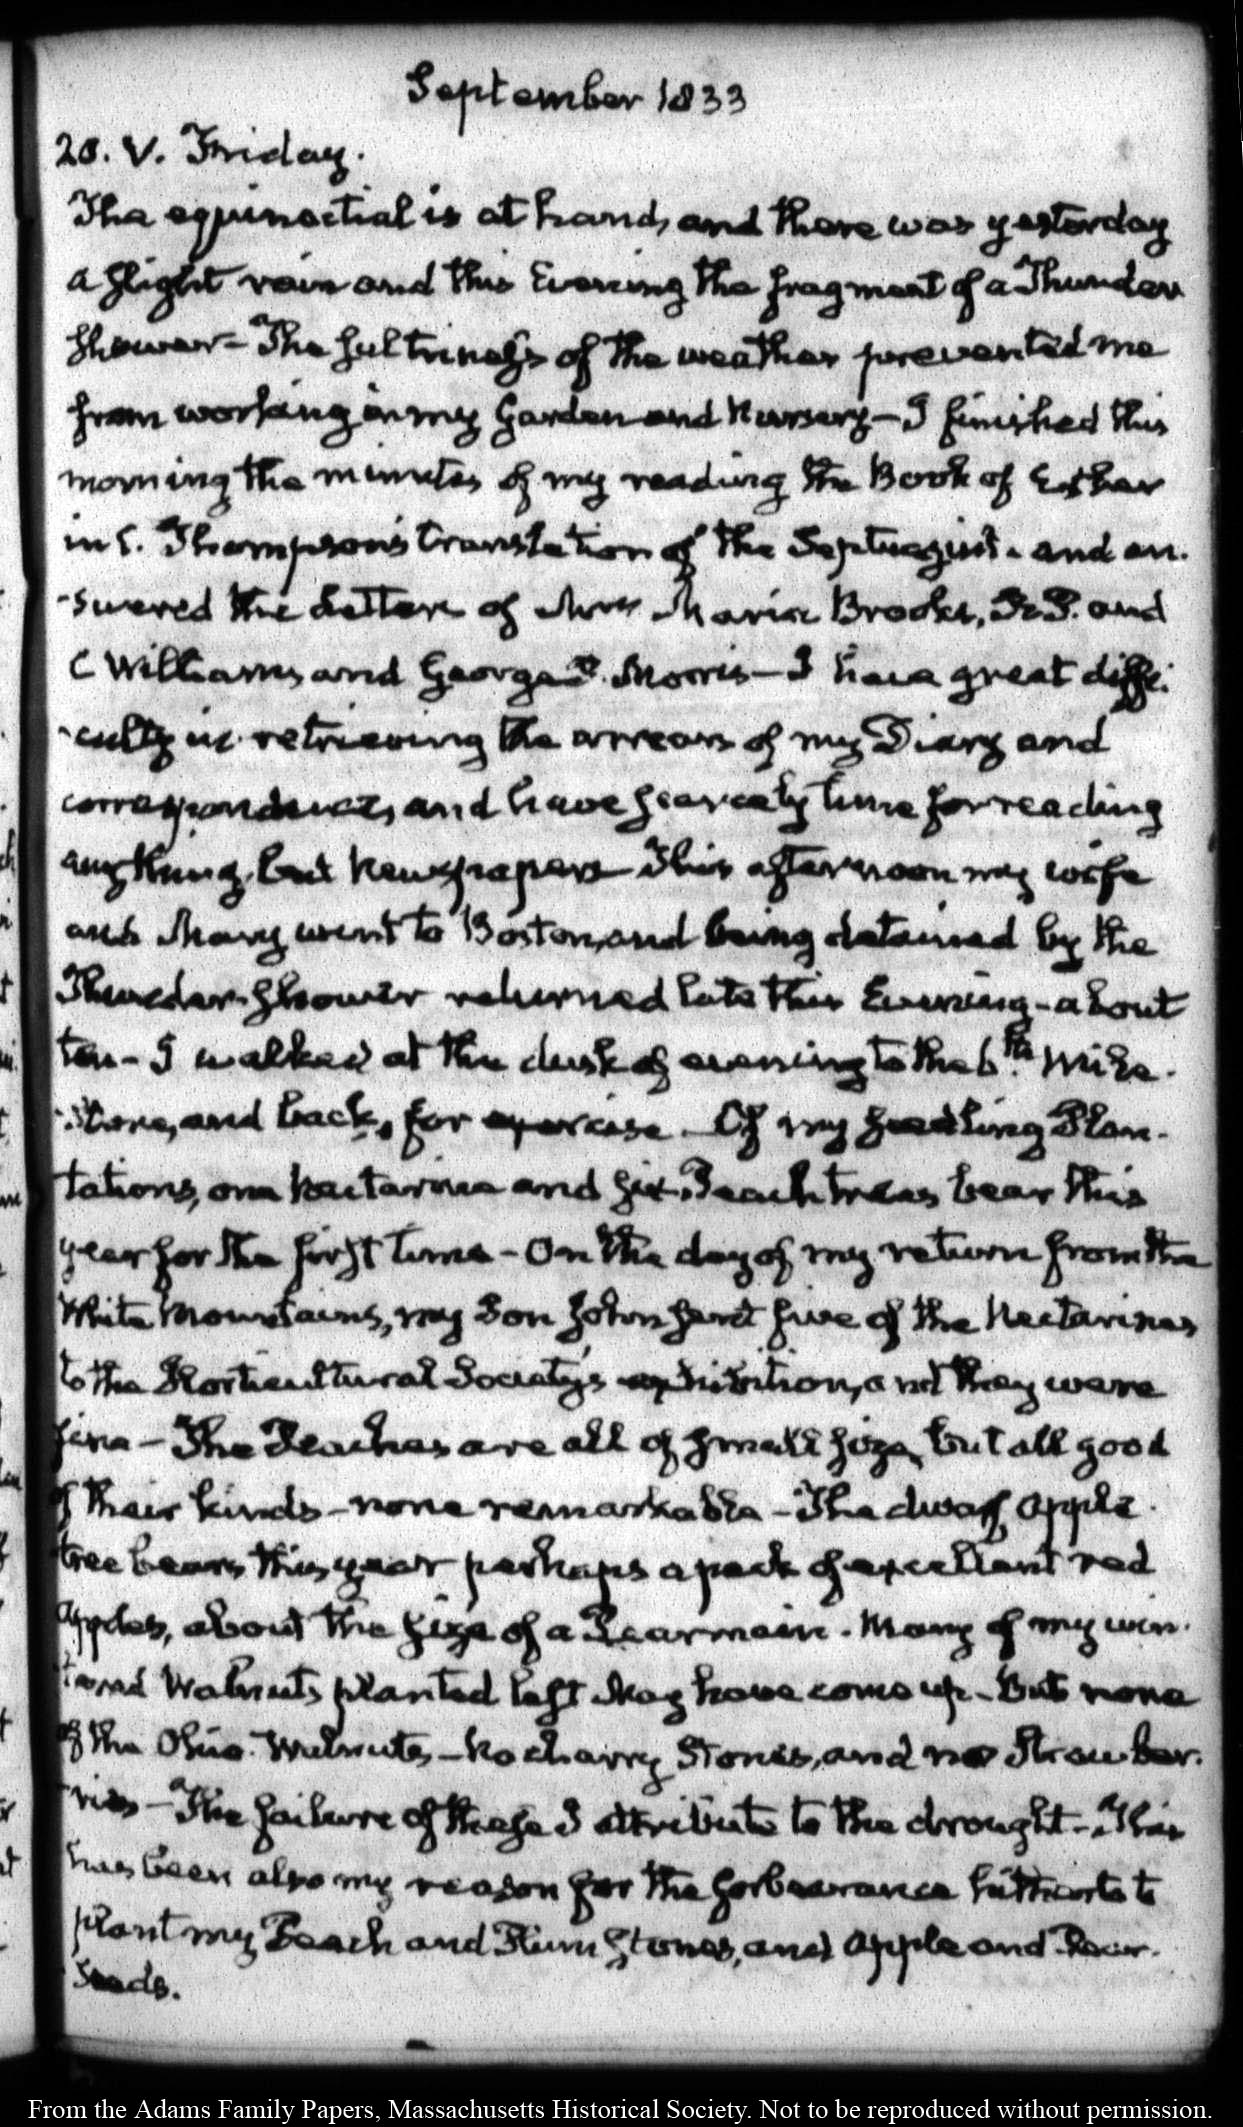 September 1833
20. V. Friday.
The equinoctial is at hand, and there was yesterday
a slight rain and this Evening the fragment of a Thunder
shower – The sultriness of the weather prevented me
from working in my Garden and Nursery – I finished this
morning the minutes of my reading the Book of Esther
in C. Thompson's translation of the Septuagint. and an-
-swered the Letters of Mrs Maria Brooks, and
C Williams and George P. Morris – I have great diffi-
-culty in retrieving the arrears of my Diary and
correspondence, and have scarcely time for reading
any thing, but Newspapers – This afternoon my wife
and Mary went to Boston, and being detained by the
Thunder-shower returned late this Evening – about
ten – I walked at the dusk of evening to the 6th Mile-
-stone, and back, for exercise – Of my seedling Plan-
tations, one Nectarine and six Peach trees bear this
year for the first time – On the day of my return from the
White Mountains, my Son John sent five of the Nectarines
to the Horticultural Society's exhibition, and they were
fine – The Peaches are all of small size, but all good
of their kinds – none remarkable – The dwarf apple-
tree bears this year perhaps a peck of excellent red
apples, about the size of a Pearmain. Many of my win-
-tered Walnuts planted last May have come up – But none
of the Ohio Walnuts – No cherry Stones, and no Strawber-
-ries – The failure of these I attribute to the drought – This
has been also my reason for the forbearance hitherto to
plant my Peach and Plum stones, and Apple and Pear-
Seeds.
From the Adams Family Papers, Massachusetts Historical Society. Not to be reproduced without permission.